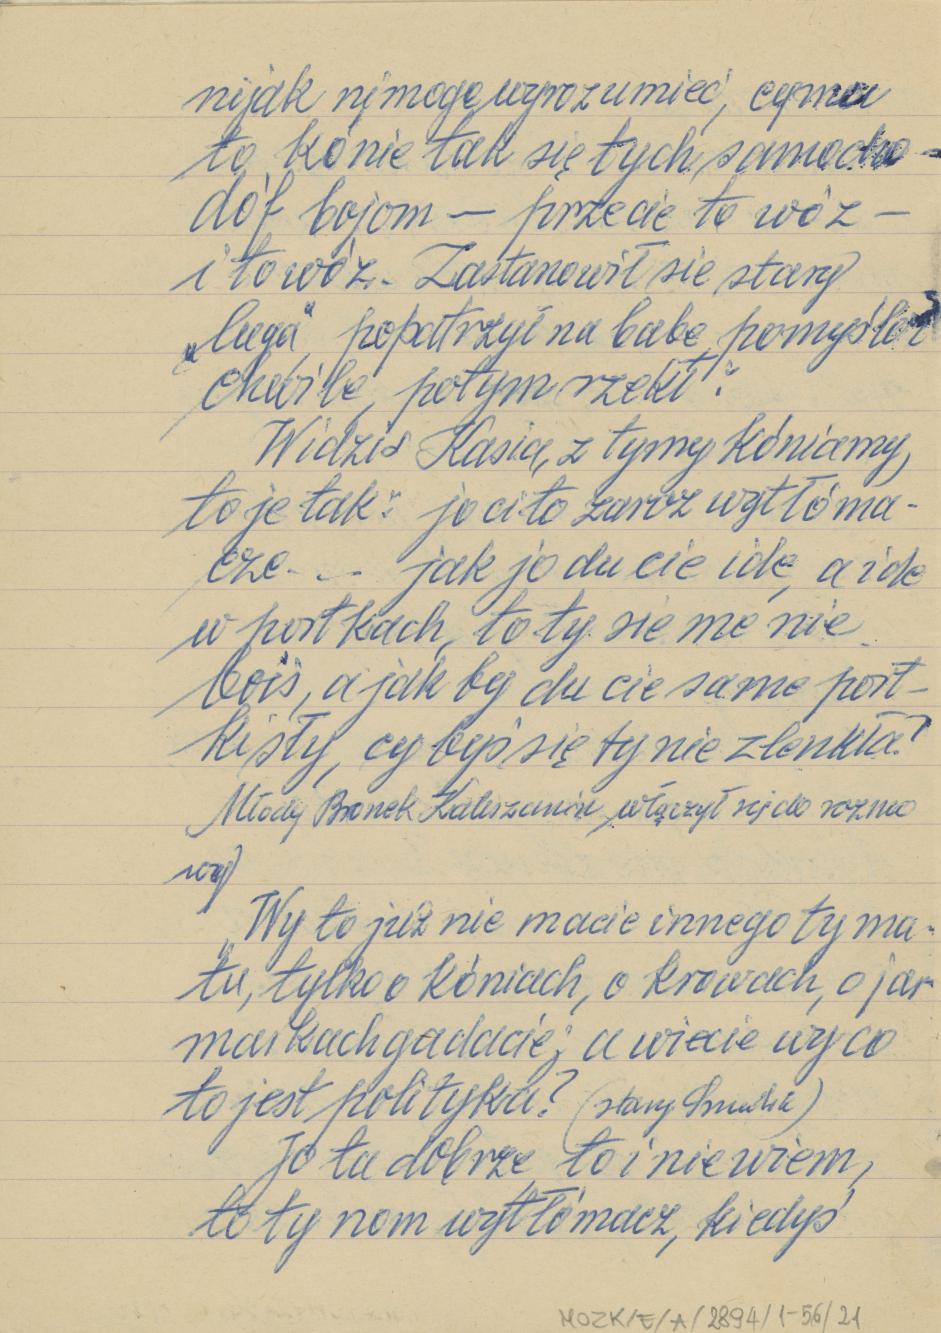 nijak ni moge wyrozumieć, cymu
to kónie tak się tych samocho-
dóf bojom — przecie to wóz —
i to wóz. Zastanowił sie stary
popatrzył na babe, pomyślał
chwile, potym rzekł:
Widzis Kasia, z tymy kóniamy,
to je tak: jo ci to zaroz wytłóma-
cze. — jak jo du cie ide, a ide
w portkach, to ty sie me nie
bois, a jak by du cie same port-
ki sły, cy byś się ty nie zlenkła?
Młody Bronek włączył się do rozmo
wy
„Wy to już nie macie innego tyma-
tu, tylko o kóniach, o krowach, o jar
markach gadacie; a wiecie wy co
to jest polityka? (stary)
Jo tu dobrze to i nie wiem,
to ty nom wytłómacz, kiedyś
MOZK/E/A/2894/1-56/21